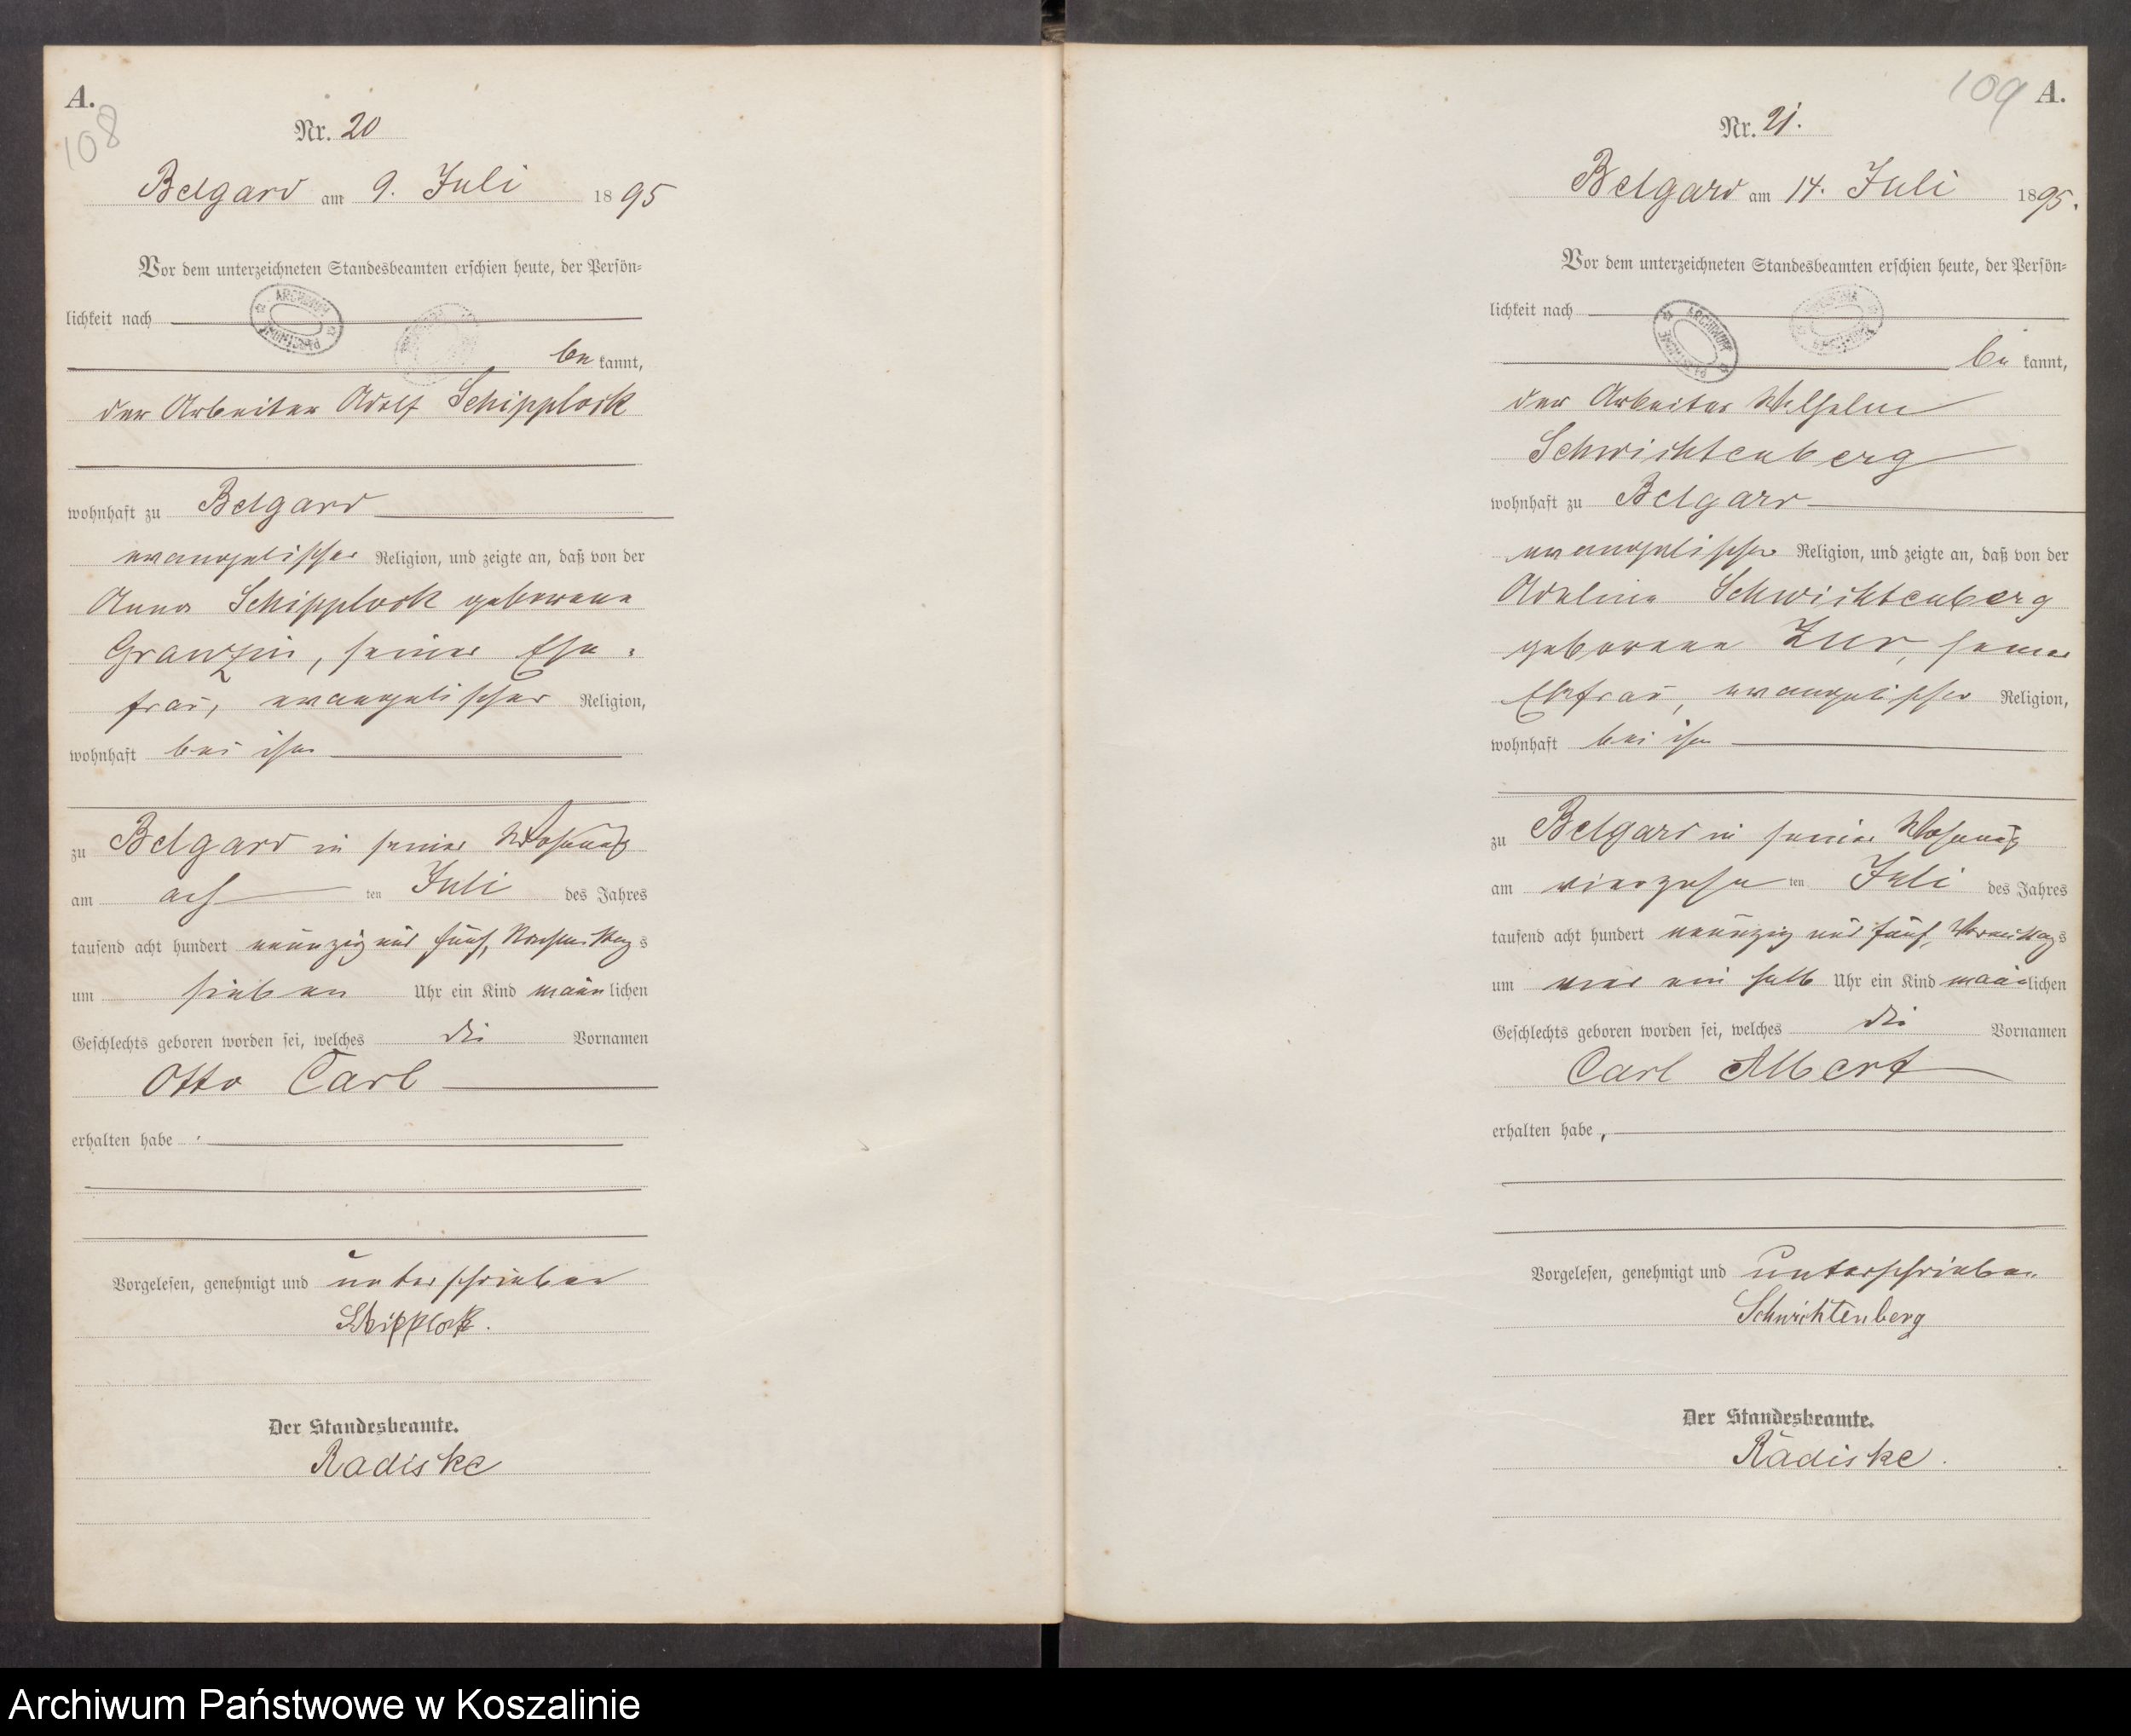 A.
108
Nr. 20
Belgard am 9. Juli 1895
Vor dem unterzeichneten Standesbeamten erschien heute, der Persön-
lichkeit nach
bekannt,
der Arbeiter Adolf Schipplock
wohnhaft zu Belgard
evangelischer Religion, und zeigte an, daß von der
Anna Schipplock geborene
Granzin, seiner Ehe-
frau, evangelischer Religion,
wohnhaft bei ihm
zu Belgard in seiner Wohnung
am achten Juli des Jahres
tausend acht hundert neunzig und fünf, Nachmittags
um sieben Uhr ein Kind männlichen
Geschlechts geboren worden sei, welches die Vornamen
Otto Carl
erhalten habe.
Vorgelesen, genehmigt und unterschrieben
Schipplock.
Der Standesbeamte.
Radiske
109 A.
Nr. 21.
Belgard am 14. Juli 1895.
Vor dem unterzeichneten Standesbeamten erschien heute, der Persön-
lichkeit nach
bekannt,
der Arbeiter Wilhelm
Schwichtenberg
wohnhaft zu Belgard
evangelischer Religion, und zeigte an, daß von der
Adeline Schwichtenberg
geborene Zur, seiner
Ehefrau, evangelischer Religion,
wohnhaft bei ihm
zu Belgard in seiner Wohnung
am vierzehnten Juli des Jahres
tausend acht hundert neunzig und fünf, Vormittags
um vier ein halb Uhr ein Kind männlichen
Geschlechts geboren worden sei, welches die Vornamen
Carl Albert
erhalten habe,
Vorgelesen, genehmigt und unterschrieben
Schwichtenberg
Der Standesbeamte.
Radiske.
Archiwum Państwowe w Koszalinie